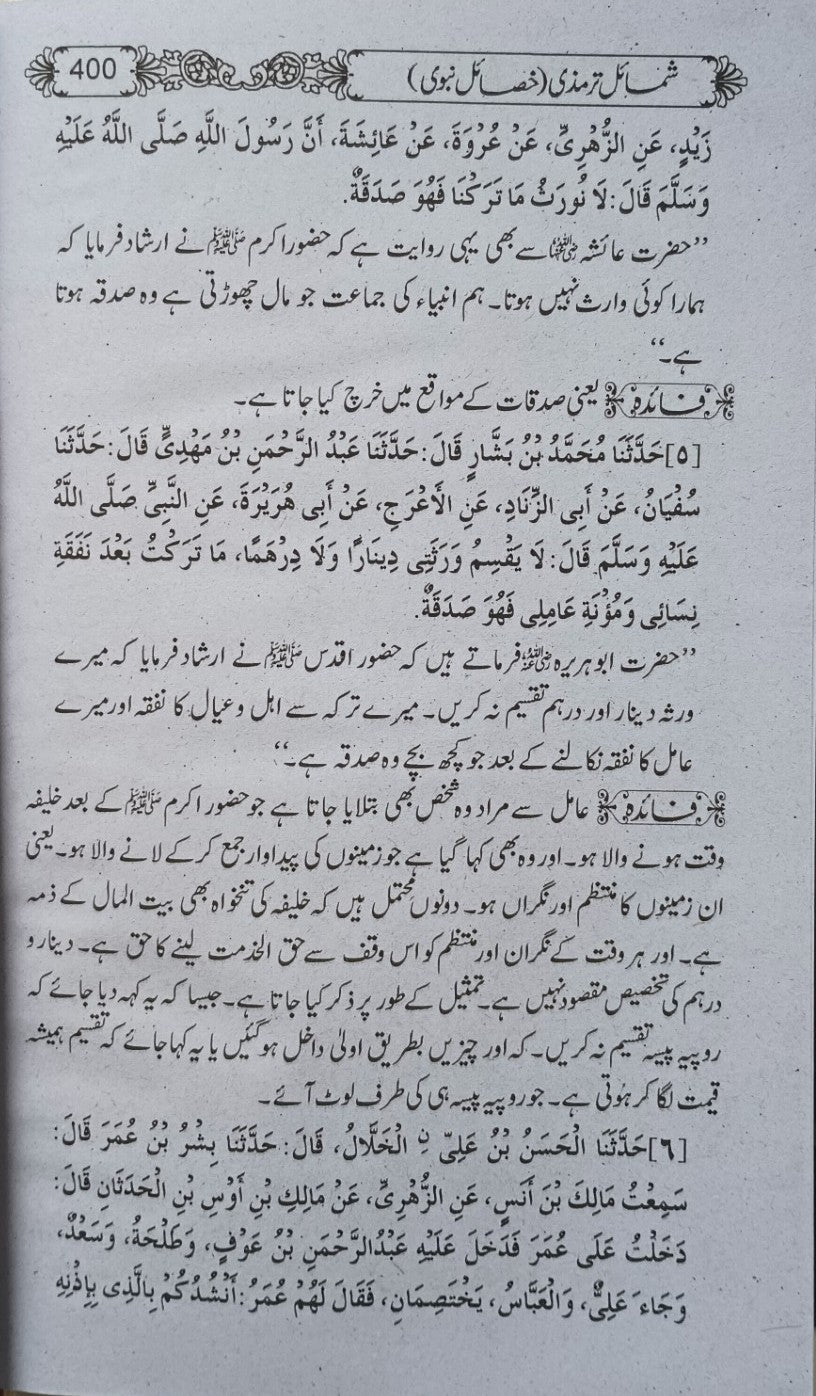 شمائل ترمذی (خصائل نبوی)
400
زَيْدٍ، عَنِ الزُّهْرِيِّ، عَنْ عُرْوَةَ، عَنْ عَائِشَةَ، أَنَّ رَسُولَ اللَّهِ صَلَّى اللَّهُ عَلَيْهِ
وَسَلَّمَ قَالَ: لَا نُورَثُ مَا تَرَكْنَا فَهُوَ صَدَقَةٌ.
”حضرت عائشہ رضی اللہ عنہا سے بھی یہی روایت ہے کہ حضور اکرم ﷺ نے ارشاد فرمایا کہ
ہمارا کوئی وارث نہیں ہوتا۔ ہم انبیاء کی جماعت جو مال چھوڑتی ہے وہ صدقہ ہوتا
ہے۔“
فائدہ یعنی صدقات کے مواقع میں خرچ کیا جاتا ہے۔
[٥] حَدَّثَنَا مُحَمَّدُ بْنُ بَشَّارٍ قَالَ: حَدَّثَنَا عَبْدُ الرَّحْمَنِ بْنُ مَهْدِيٍّ قَالَ: حَدَّثَنَا
سُفْيَانُ، عَنْ أَبِي الزِّنَادِ، عَنِ الْأَعْرَجِ، عَنْ أَبِي هُرَيْرَةَ، عَنِ النَّبِيِّ صَلَّى اللَّهُ
عَلَيْهِ وَسَلَّمَ قَالَ: لَا يَقْسِمُ وَرَثَتِي دِينَارًا وَلَا دِرْهَمًا، مَا تَرَكْتُ بَعْدَ نَفَقَةِ
نِسَائِي وَمُؤْنَةِ عَامِلِي فَهُوَ صَدَقَةٌ.
”حضرت ابو ہریرہ رضی اللہ عنہ فرماتے ہیں کہ حضور اقدس ﷺ نے ارشاد فرمایا کہ میرے
ورثہ دینار اور درہم تقسیم نہ کریں۔ میرے ترکہ سے اہل و عیال کا نفقہ اور میرے
عامل کا نفقہ نکالنے کے بعد جو کچھ بچے وہ صدقہ ہے۔“
فائدہ عامل سے مراد وہ شخص بھی بتلایا جاتا ہے جو حضور اکرم ﷺ کے بعد خلیفہ
وقت ہونے والا ہو۔ اور وہ بھی کہا گیا ہے جو زمینوں کی پیداوار جمع کر کے لانے والا ہو۔ یعنی
ان زمینوں کا منتظم اور نگراں ہو۔ دونوں محتمل ہیں کہ خلیفہ کی تنخواہ بھی بیت المال کے ذمہ
ہے۔ اور ہر وقت کے نگران اور منتظم کو اس وقف سے حق الخدمت لینے کا حق ہے۔ دینار و
درہم کی تخصیص مقصود نہیں ہے۔ تمثیل کے طور پر ذکر کیا جاتا ہے۔ جیسا کہ یہ کہہ دیا جائے کہ
روپیہ پیسہ تقسیم نہ کریں۔ کہ اور چیزیں بطریق اولیٰ داخل ہو گئیں یا یہ کہا جائے کہ تقسیم ہمیشہ
قیمت لگا کر ہوتی ہے۔ جو روپیہ پیسہ ہی کی طرف لوٹ آئے۔
[٦] حَدَّثَنَا الْحَسَنُ بْنُ عَلِيِّ نِ الْخَلَّالُ، قَالَ: حَدَّثَنَا بِشْرُ بْنُ عُمَرَ قَالَ:
سَمِعْتُ مَالِكَ بْنَ أَنَسٍ، عَنِ الزُّهْرِيِّ، عَنْ مَالِكِ بْنِ أَوْسِ بْنِ الْحَدَثَانِ قَالَ:
دَخَلْتُ عَلَى عُمَرَ فَدَخَلَ عَلَيْهِ عَبْدُالرَّحْمَنِ بْنُ عَوْفٍ، وَطَلْحَةُ، وَسَعْدٌ،
وَجَاءَ عَلِيٌّ، وَالْعَبَّاسُ، يَخْتَصِمَانِ، فَقَالَ لَهُمْ عُمَرُ: أَنْشُدُكُمْ بِالَّذِي بِإِذْنِهِ